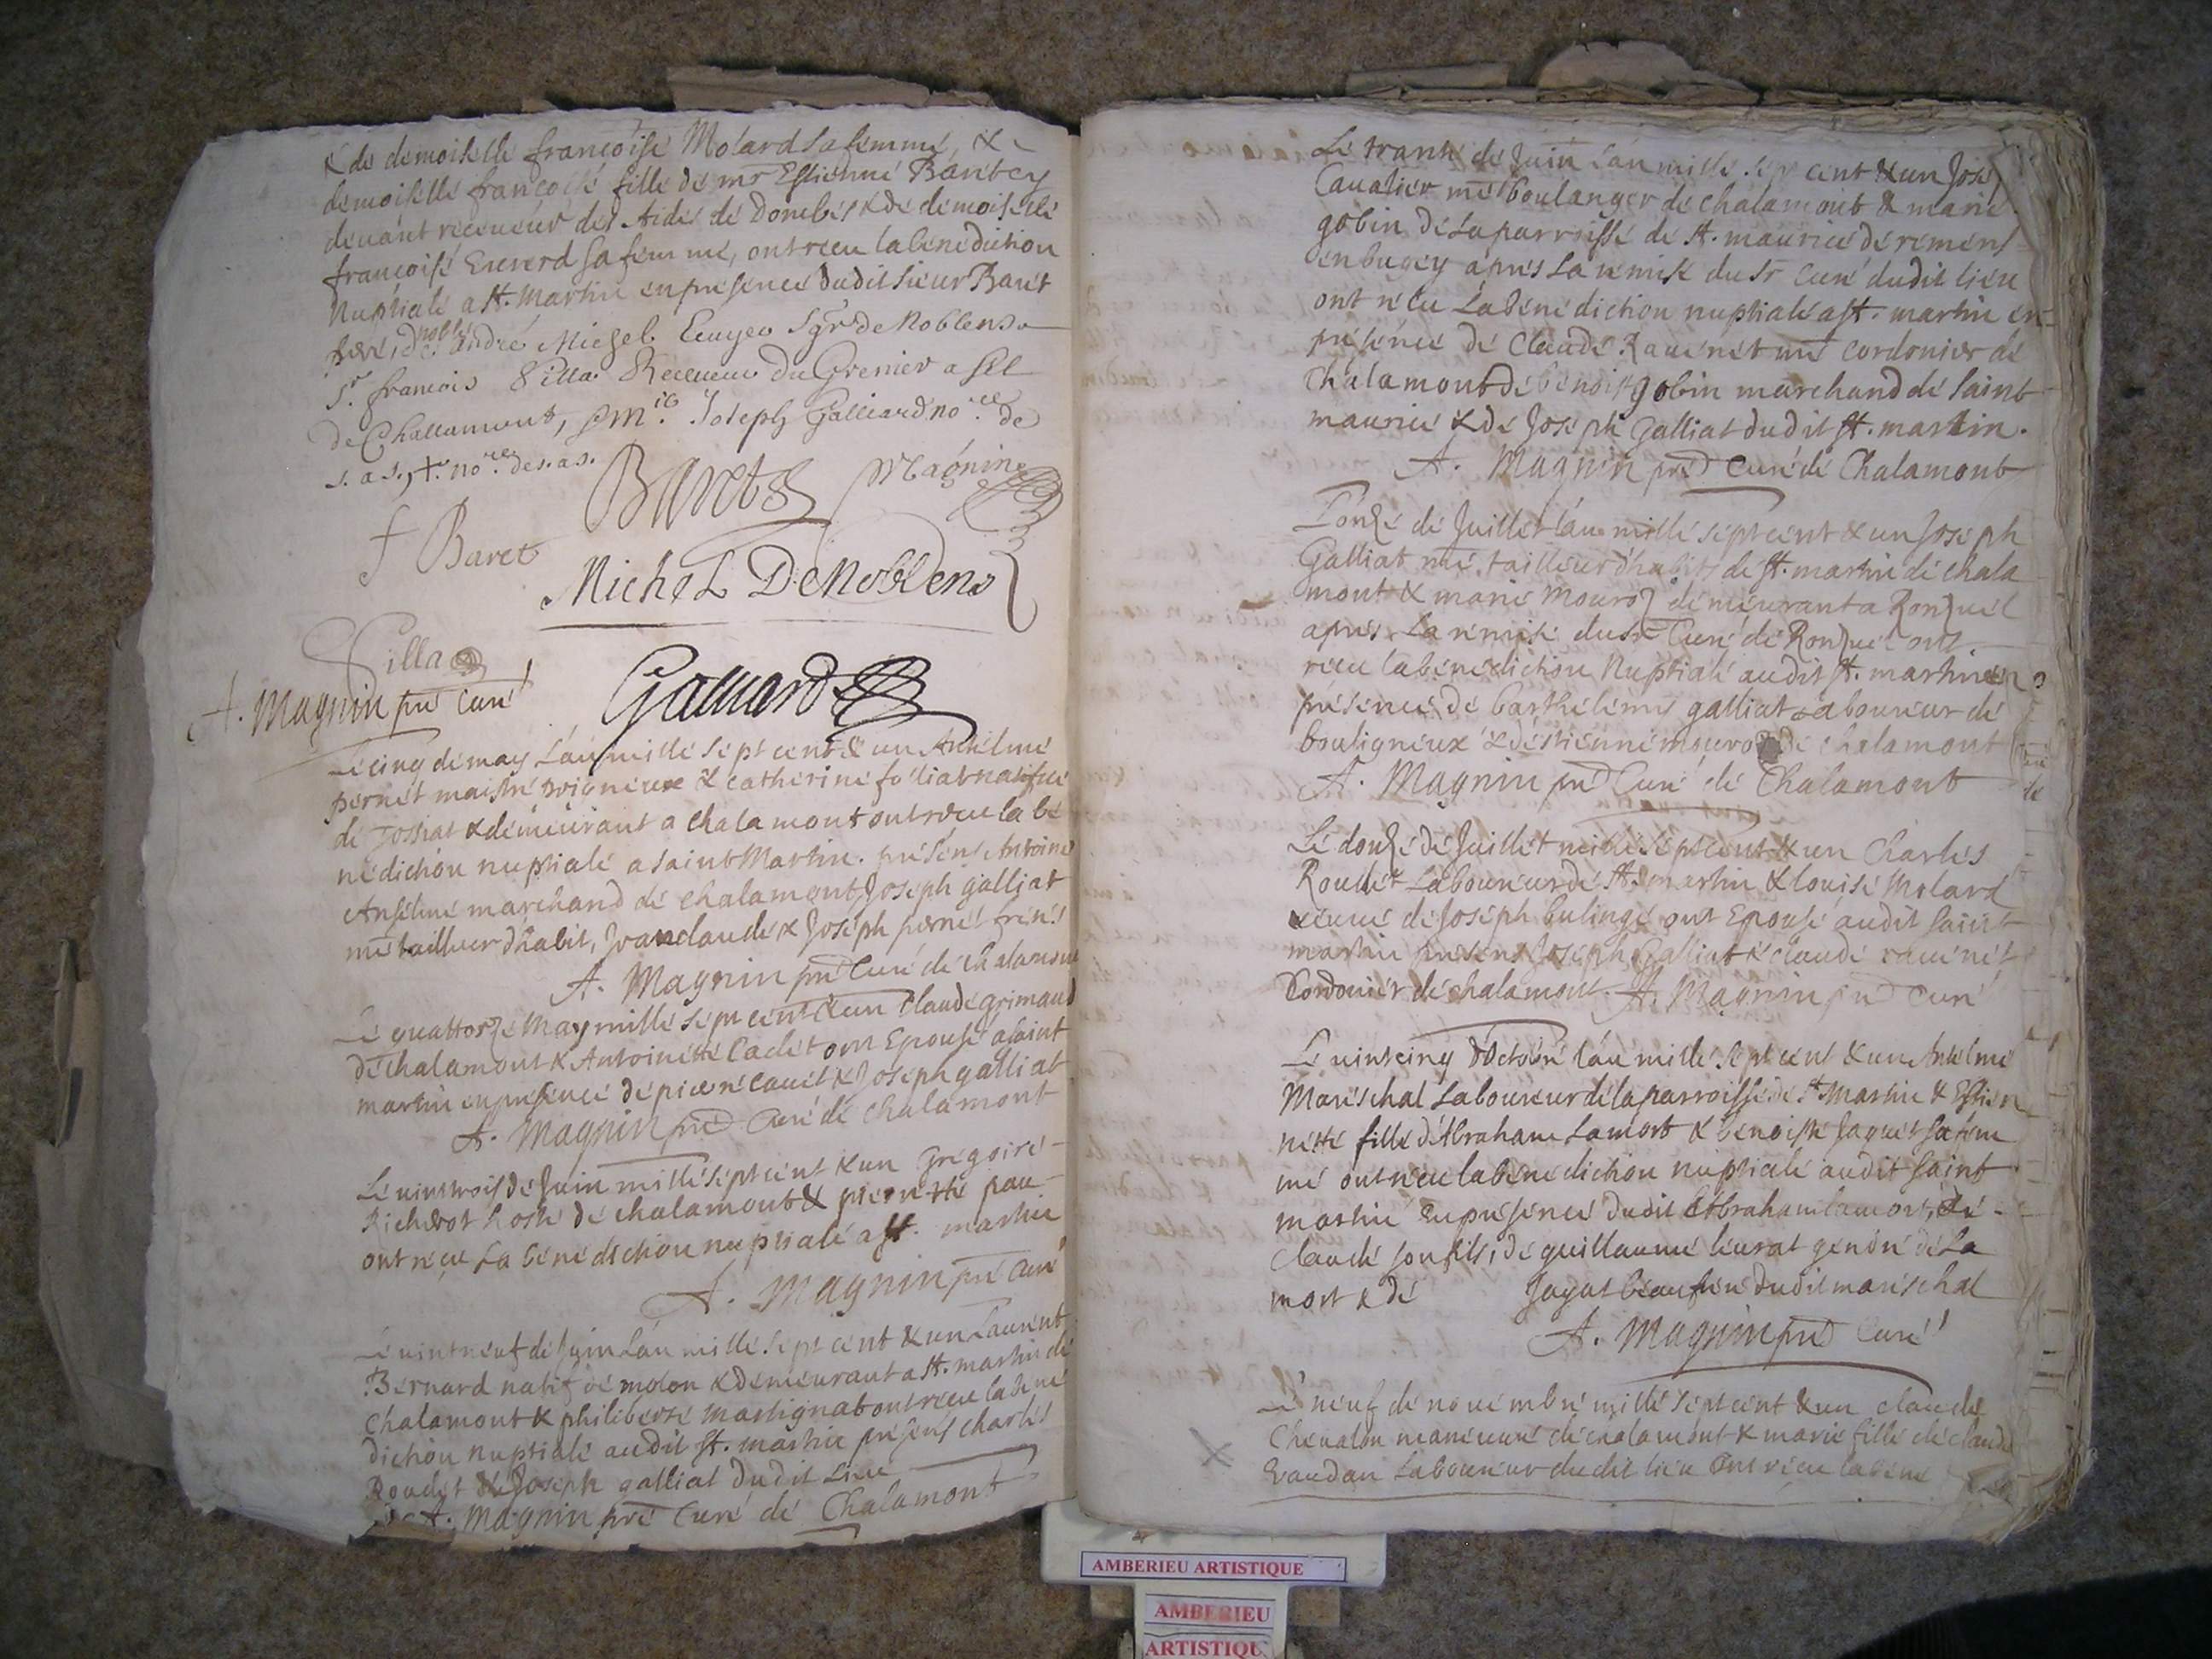 & de demoiselle françoise Molard sa femme, & de
demoiselle françoise fille de mr Estienne Barbey
devant receveur des Aides de Dombes & de demoiselle
françoise sa femme, ont receu la benediction
Nuptiale a St. Martin en presence dudit sieur Baret
pere, de noble andré Michel Ecuyer Sgr de Noblens
Sr. francois Silla Receveur du Grenier a sel
de Challamont, Joseph Galliard nore. de
s. a. s. nore. de s. a. s.
Baret Magnin
f Baret
Michel DeNoblens
Silla
A. Magnin pre Curé Galliard
Le cinq de may l'an mille sept cent & un Anthelme
pernet maistre & catherine foliat natifve
de Jossiat & demeurant a chalamont ont receu la be
nediction nuptiale a saint Martin. présens Antoine
Anselme marchand de chalamont, Joseph galliat
me tailleur d'habit, Jean claude & Joseph pernet freres
A. Magnin pre Curé de chalamont
Le quattorze May mille sept cent & un Claude grimaud
de chalamont & Antoinette Cadet ont Epousé a saint
martin en presence de pierre cadet & Joseph galliat
A. Magnin pre Curé de chalamont
Le vinttrois de Juin mille sept cent & un Gregoire
Richerot hoste de chalamont & pierrette pau
ont reçu La bénédiction nuptiale a St. martin
A. Magnin pre Curé
Le vintneuf de Juin L'an mille sept cent & un Laurent
Bernard natif de molon & demeurant a St. martin de
chalamont & philiberte Martignat ont receu la bene
diction nuptiale audit St. martin présens charles
Roudet & Joseph galliat dudit Lieu
A. Magnin pre Curé de Chalamont
Le trante de Juin L'an mille sept cent & un Jose
Cavalier me boulanger de chalamont & marie
gobin de La parroisse de St. maurice de remens
en bugey apres La remise du Sr Curé dudit lieu
ont reçu La bénédiction nuptiale a St. martin en
présence de Claude Ravenet me cordonier de
Chalamont de benoist gobin marchand de saint
maurice & de Joseph Galliat dudit St. martin.
A. Magnin pre Curé de Chalamont
L'onze de Juillet l'an mille sept cent & un Joseph
Galliat me. tailleur d'habits de St. martin de chala
mont & marie Mouroz demeurant a Ronzuel
apres La remise du Sr Curé de Ronzuel ont
receu la benediction Nuptiale audit St. martin en
présence de barthélemy galliat Laboureur de
bouligneux & d'estienne mouroz de chalamont
A. Magnin pre Curé de Chalamont
Le douze de Juillet mille sept cent & un Charles
Roudet Laboureur de St. martin & louise Molard
veuve de Joseph bulinge ont Epousé audit saint
martin présens Joseph Galliat & claude ravenet
Cordonier de chalamont. A. Magnin pre Curé
Le vintcinq d'octobre l'an mille sept cent & un Anthelme
Mareschal Laboureur de la parroisse de St Martin & Estien
nette fille d'Abraham Lamort & benoiste Jaquet sa fem
me ont receu la benediction nuptiale audit saint
martin en presence dudit Abraham lamort, de
claude son fils, de guillaume leurat gendre de La
mort & de Jayat beaufrere dudit mareschal
A. Magnin pre Curé
Le neuf de novembre mille sept cent & un claude
Chevalon manoeuvre de chalamont & marie fille de claude
Evaudan Laboureur dudit lieu Ont reçu la bene
AMBERIEU ARTISTIQUE
AMBERIEU
ARTISTIQU